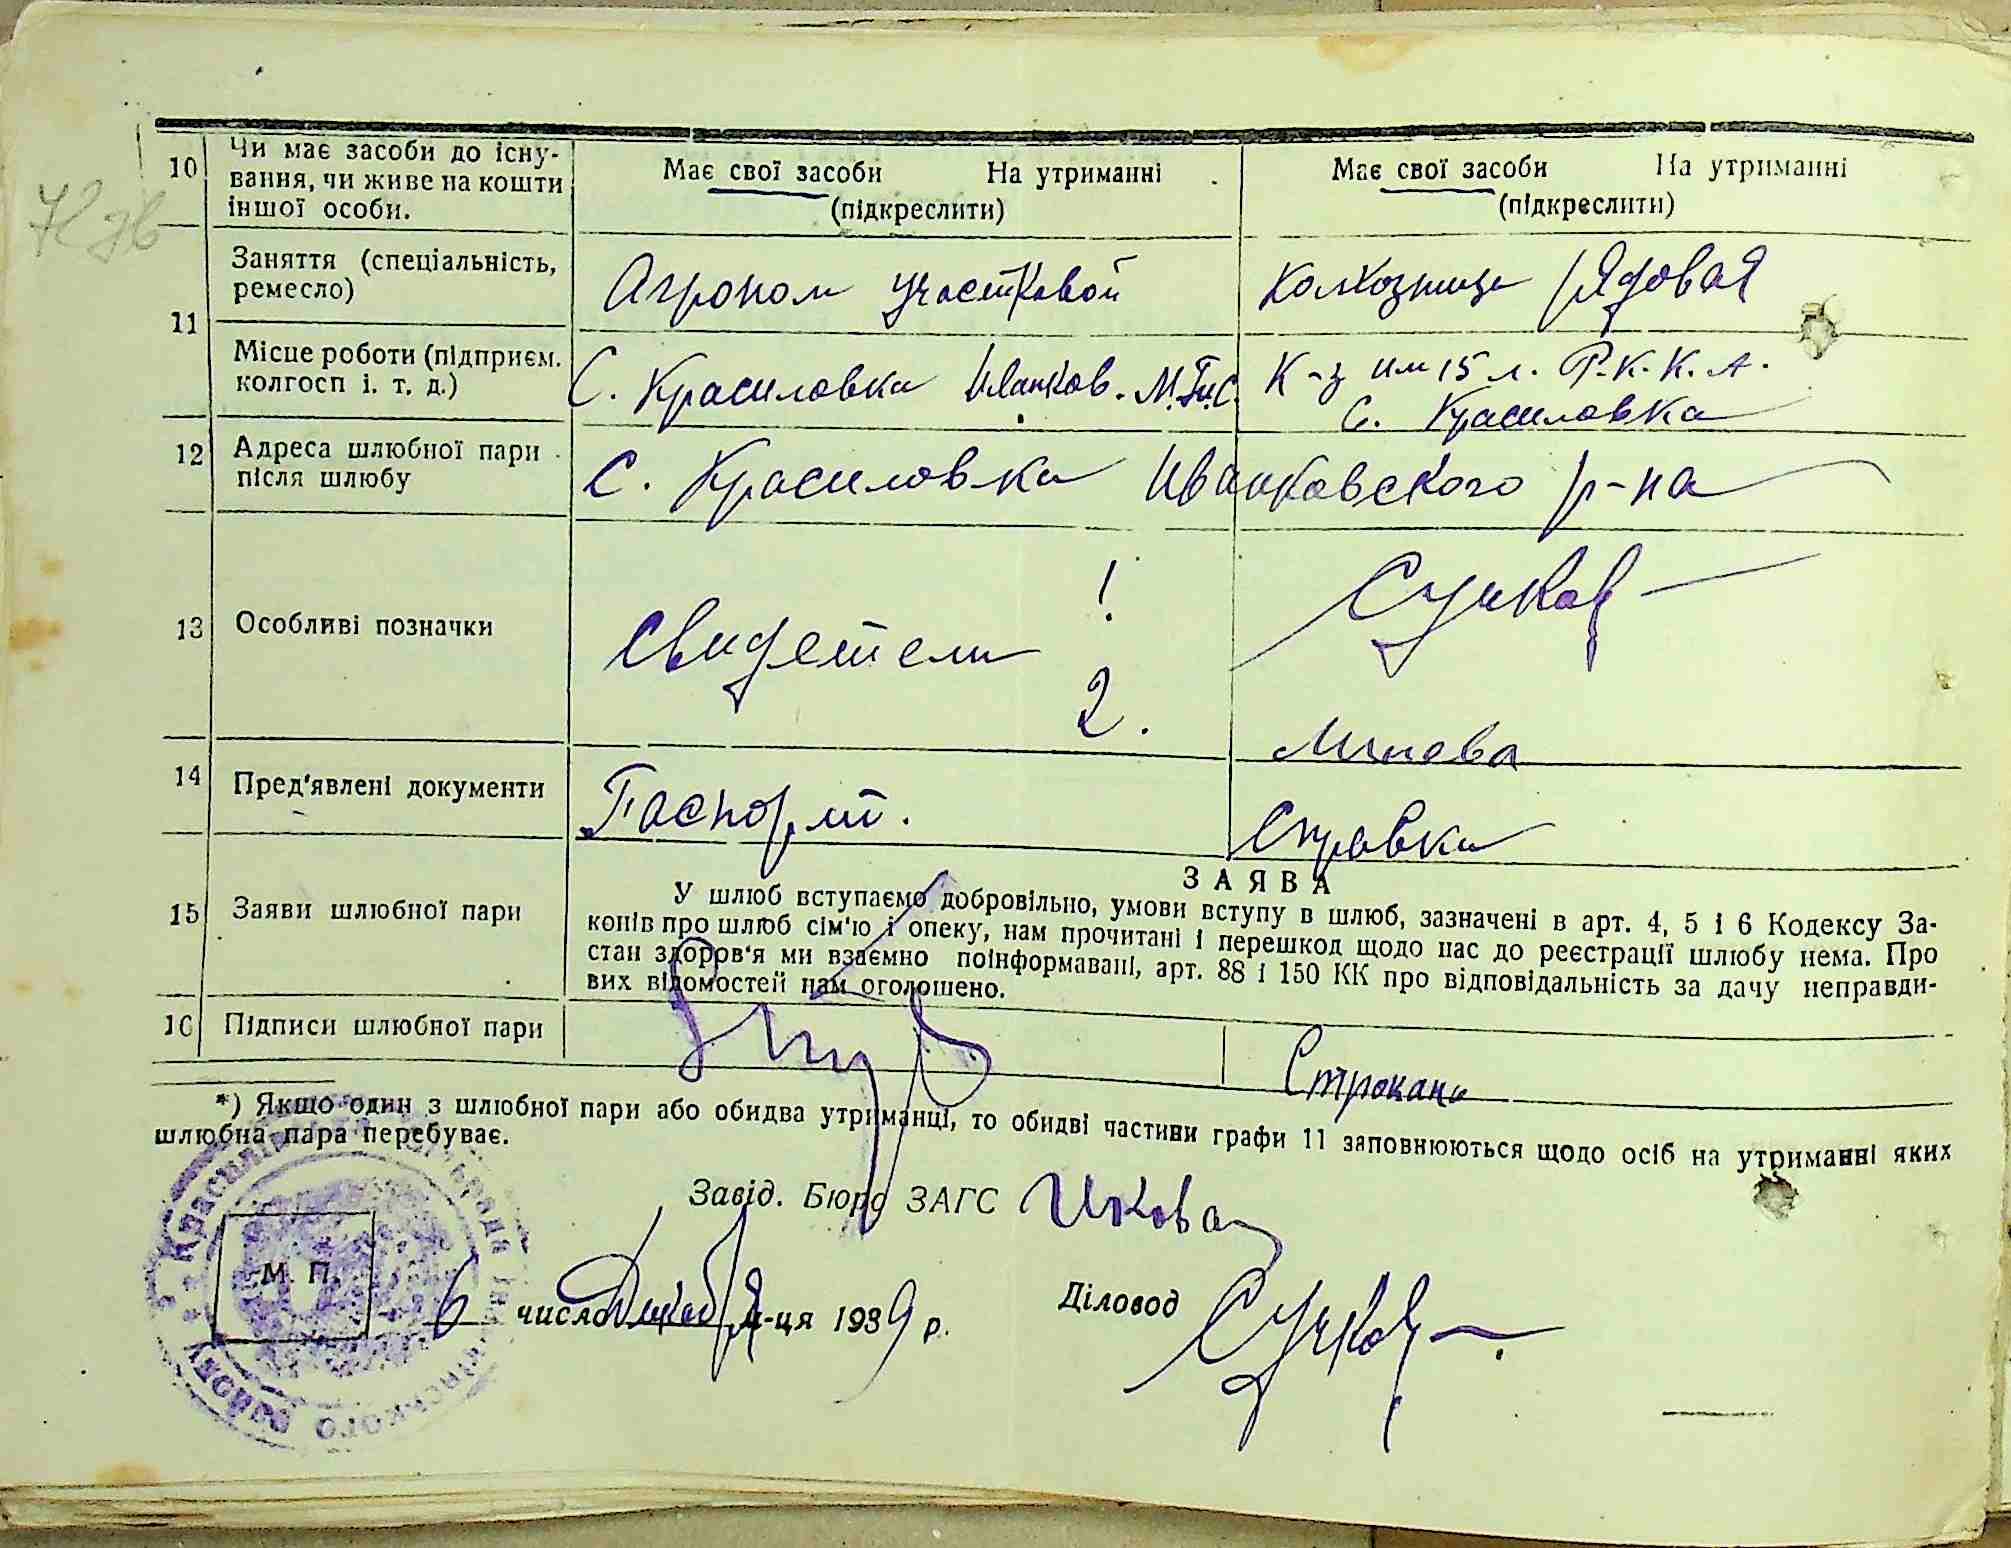 10 Чи має засоби до існу-
вання, чи живе на кошти
іншої особи.
Має свої засоби На утриманні
(підкреслити)
Має свої засоби На утриманні
(підкреслити)
11 Заняття (спеціальність,
ремесло)
Агроном участковой
колхозница рядовая
Місце роботи (підприєм.
колгосп і. т. д.)
С. Красиловка Иванков. М.Т.С.
К-з им 15 л. Р.К.К.А.
С. Красиловка
12 Адреса шлюбної пари
після шлюбу
С. Красиловка Иванковского р-на
13 Особливі позначки
Свидетели 1. Сучков
2. Минова
14 Пред'явлені документи
Паспорт.
Справка
15 Заяви шлюбної пари
ЗАЯВА
У шлюб вступаємо добровільно, умови вступу в шлюб, зазначені в арт. 4, 5 і 6 Кодексу За-
конів про шлюб сім'ю і опеку, нам прочитані і перешкод щодо нас до реєстрації шлюбу нема. Про
стан здоров'я ми взаємно поінформавані, арт. 88 і 150 КК про відповідальність за дачу неправди-
вих відомостей нам оголошено.
16 Підписи шлюбної пари
Строкань
*) Якщо один з шлюбної пари або обидва утриманці, то обидві частини графи 11 заповнюються щодо осіб на утриманні яких
шлюбна пара перебуває.
Завід. Бюро ЗАГС
М. П.
6 число Декабря м-ця 1939 р.
Діловод Сучков